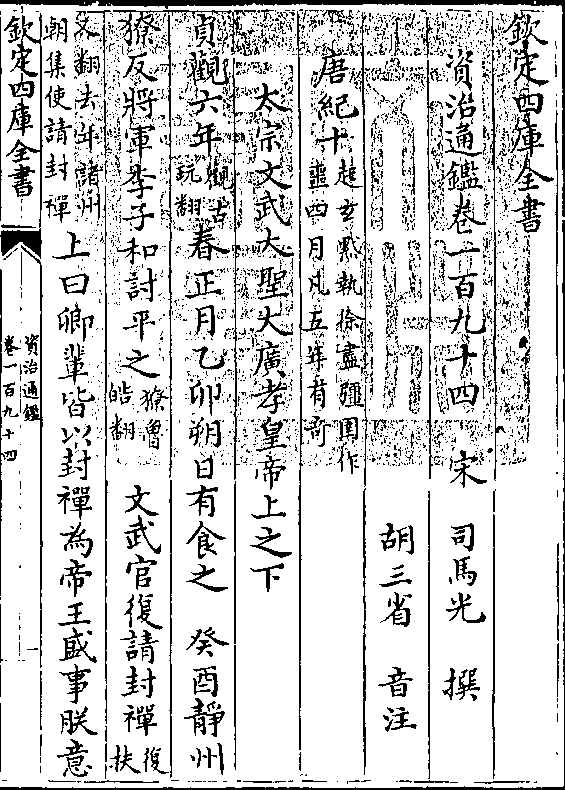 欽定四庫全書
資治通鑑卷一百九十四 宋 司馬光 撰
胡三省 音注
唐紀十 起玄黓執徐盡彊圉作噩四月凡五年有奇
太宗文武大聖大廣孝皇帝上之下
貞觀六年 觀古玩翻 春正月乙卯朔日有食之 癸酉靜州
獠反將軍李子和討平之 獠魯皓翻 文武官復請封禪 復扶
又翻去年諸州朝集使請封禪 上曰卿輩皆以封禪為帝王盛事朕意
欽定四庫全書
資治通鑑
卷一百九十四
一